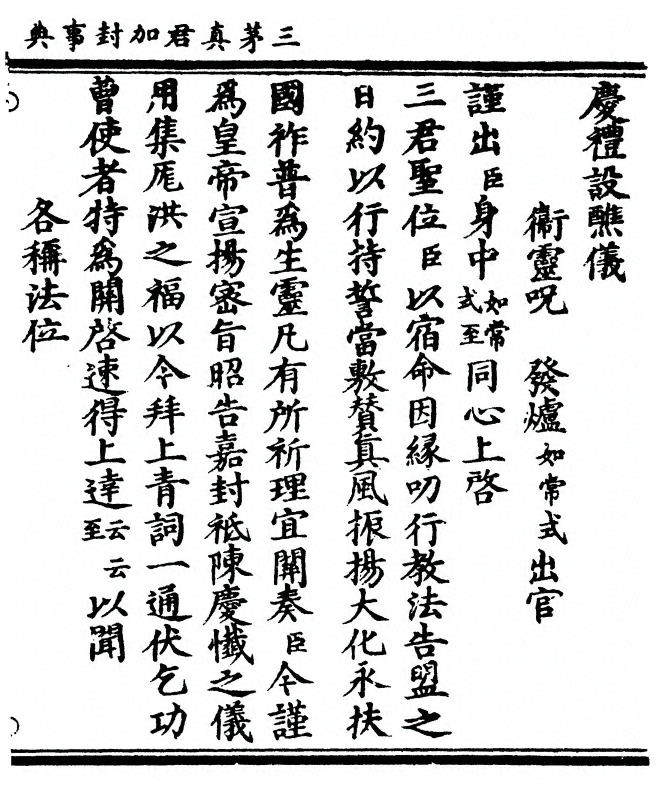 三茅真君加封事典
慶禮設醮儀
衞靈呪 發爐如常式出官
謹出臣身中如常式至同心上啓
三君聖位臣以宿命因緣叨行教法告盟之
日約以行持誓當敷賛真風振揚大化永扶
國祚普爲生靈凡有所祈理宜闡奏臣今謹
爲皇帝宣揚密旨昭告嘉封祗陳慶懺之儀
用集厖洪之福以今拜上青詞一通伏乞功
曹使者特爲開啓速得上達云云至以聞
各稱法位